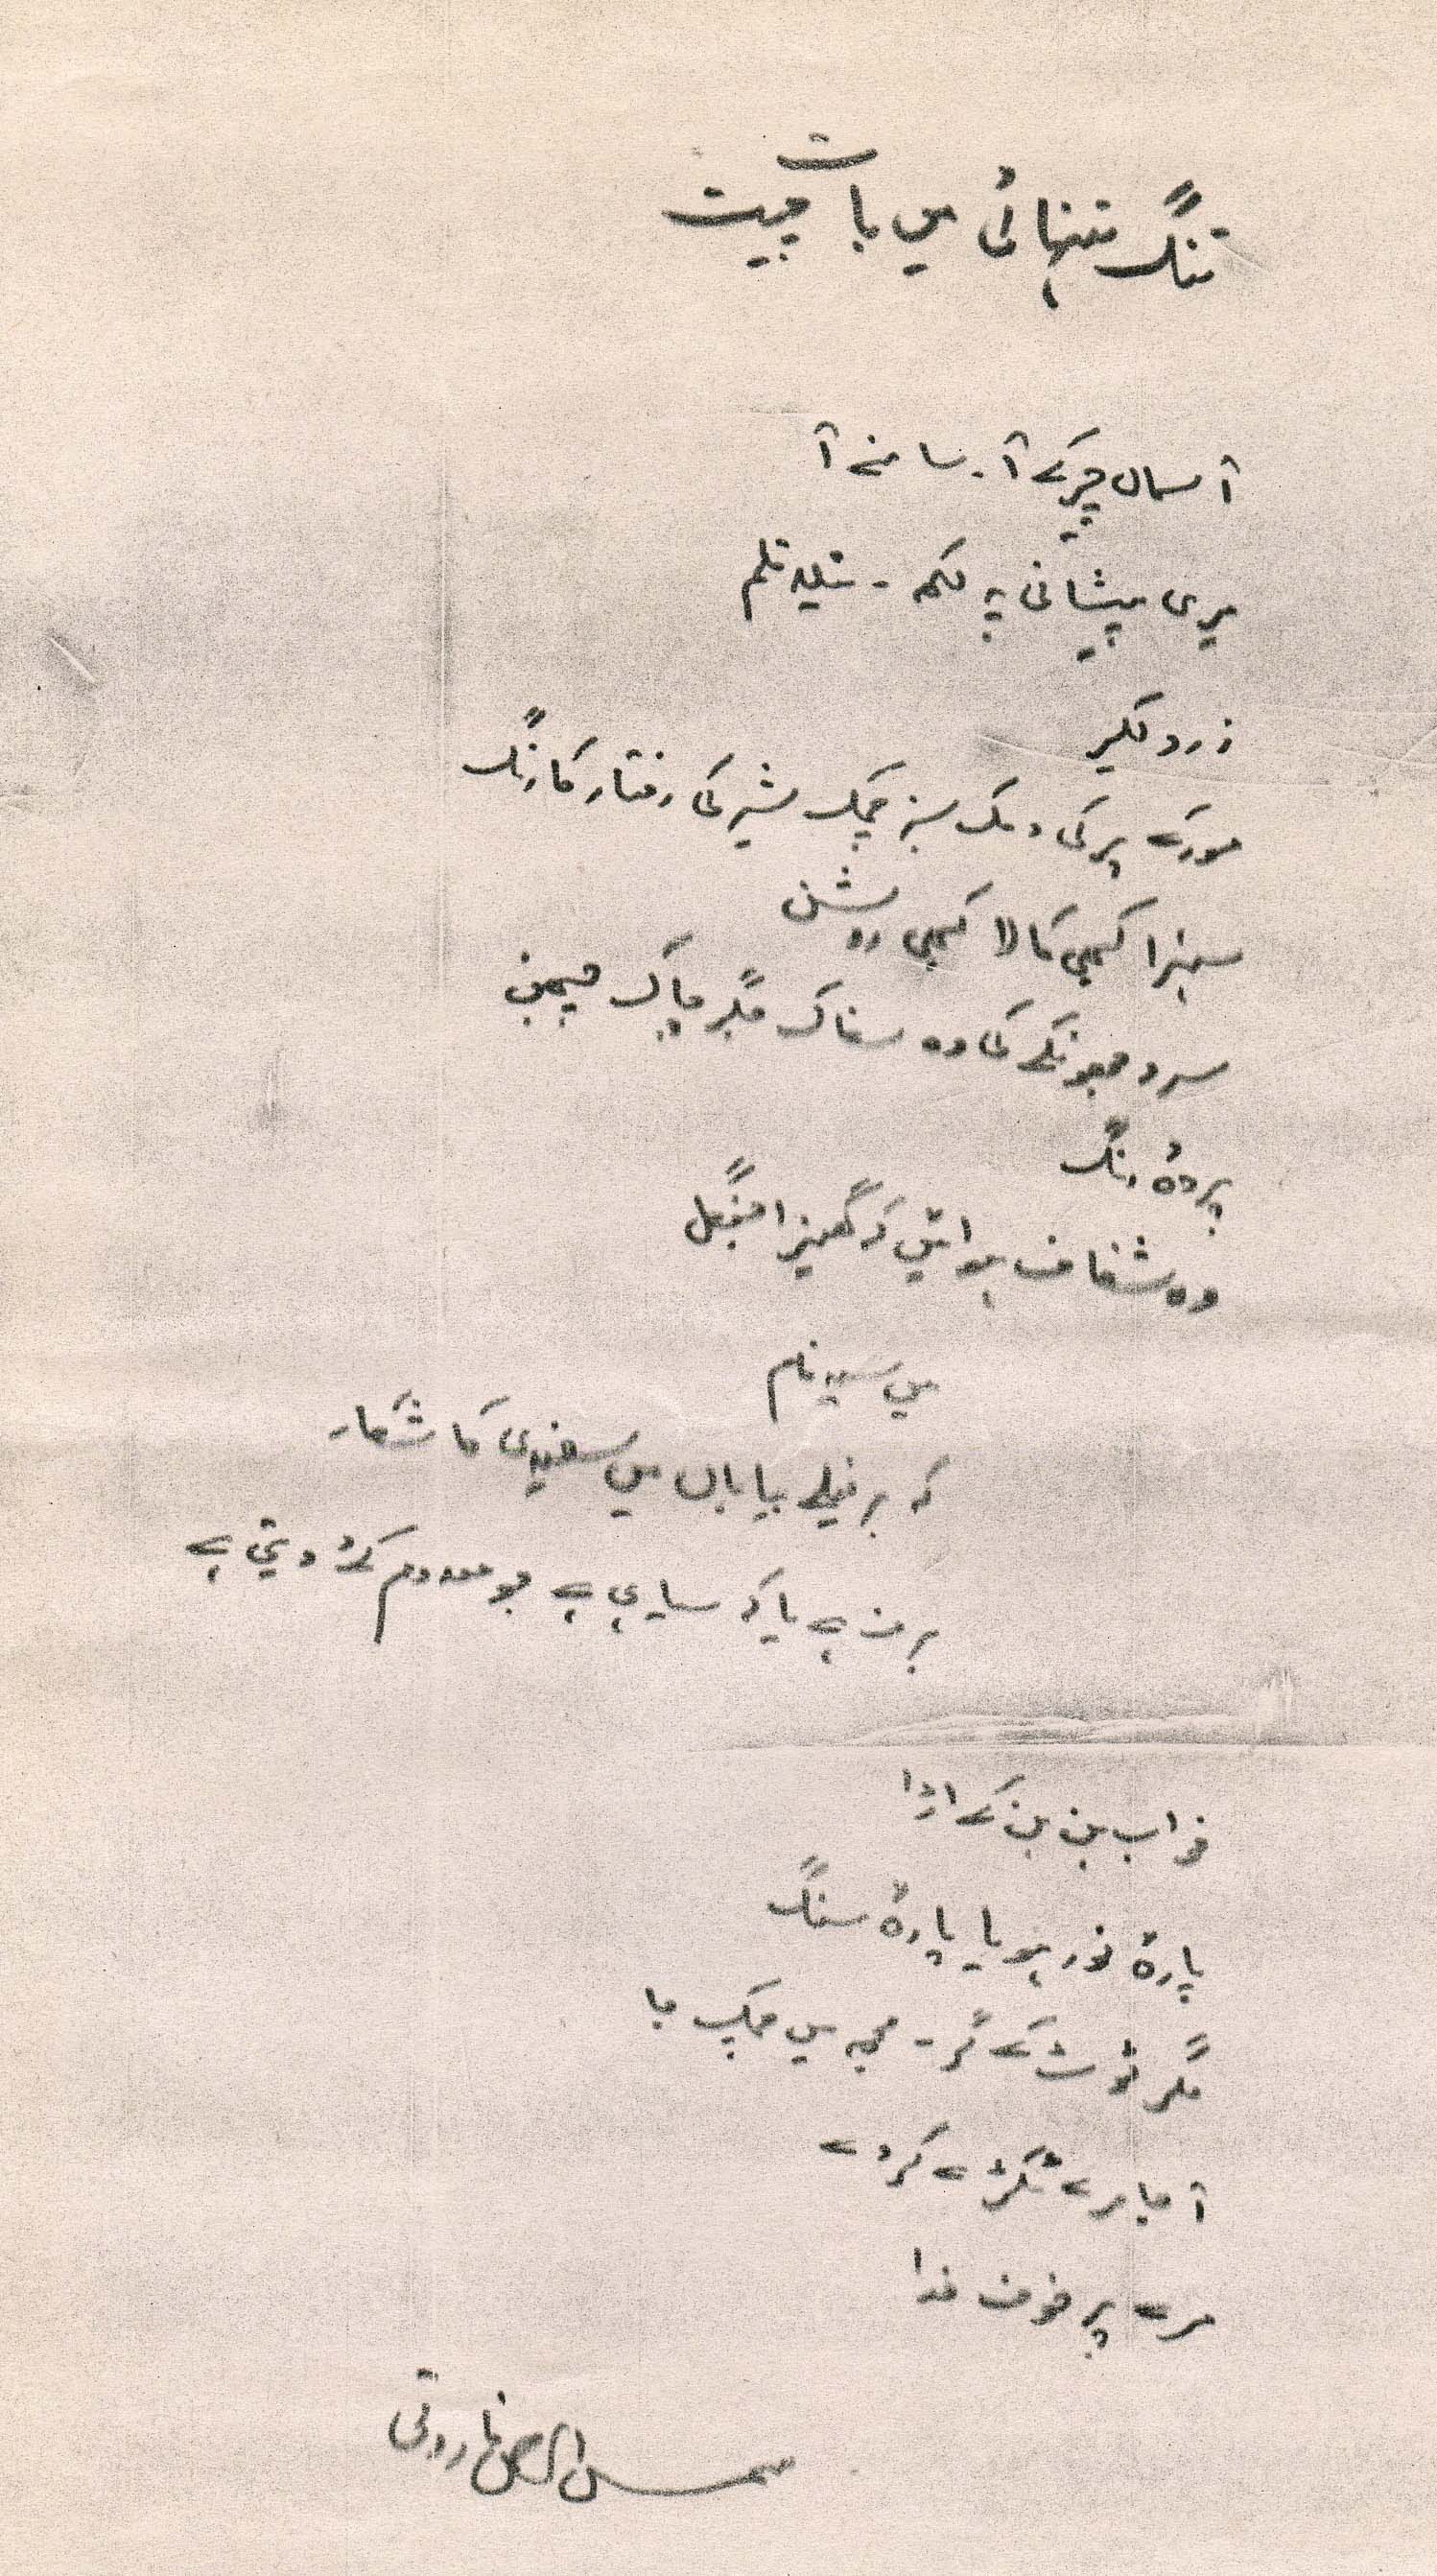 تنگ تنہائی میں بات چیت
آسماں چیر کے آ۔ سامنے آ
میری پیشانی پہ لکھ ۔ قلم
زرد لکیر
مور کے پر کی دمک سبز چمک شیر کی رفتار کا رنگ
سبزا کبھی کالا کبھی روشن
سرد جھونکے کی وہ سفاک مگر پاک چبھن
پردۂ رنگ
وہ شفاف ہوائیں کہ گھنیرا جنگل
میں سیہ فام
کہ برفیلے بیاباں میں سفیدی کا شکار
برف ہے یا کہ سیاہی ہے جو معدوم کئے دیتی ہے
خواب بن بن کے اڑا
پارۂ نور ہو یا پارۂ سنگ
مگر ٹوٹ کے گر ۔ مجھ میں چمک جا
آ جا مرے ٹکڑے کر دے
مرے پر خوف خدا
شمس الرحمٰن فاروقی